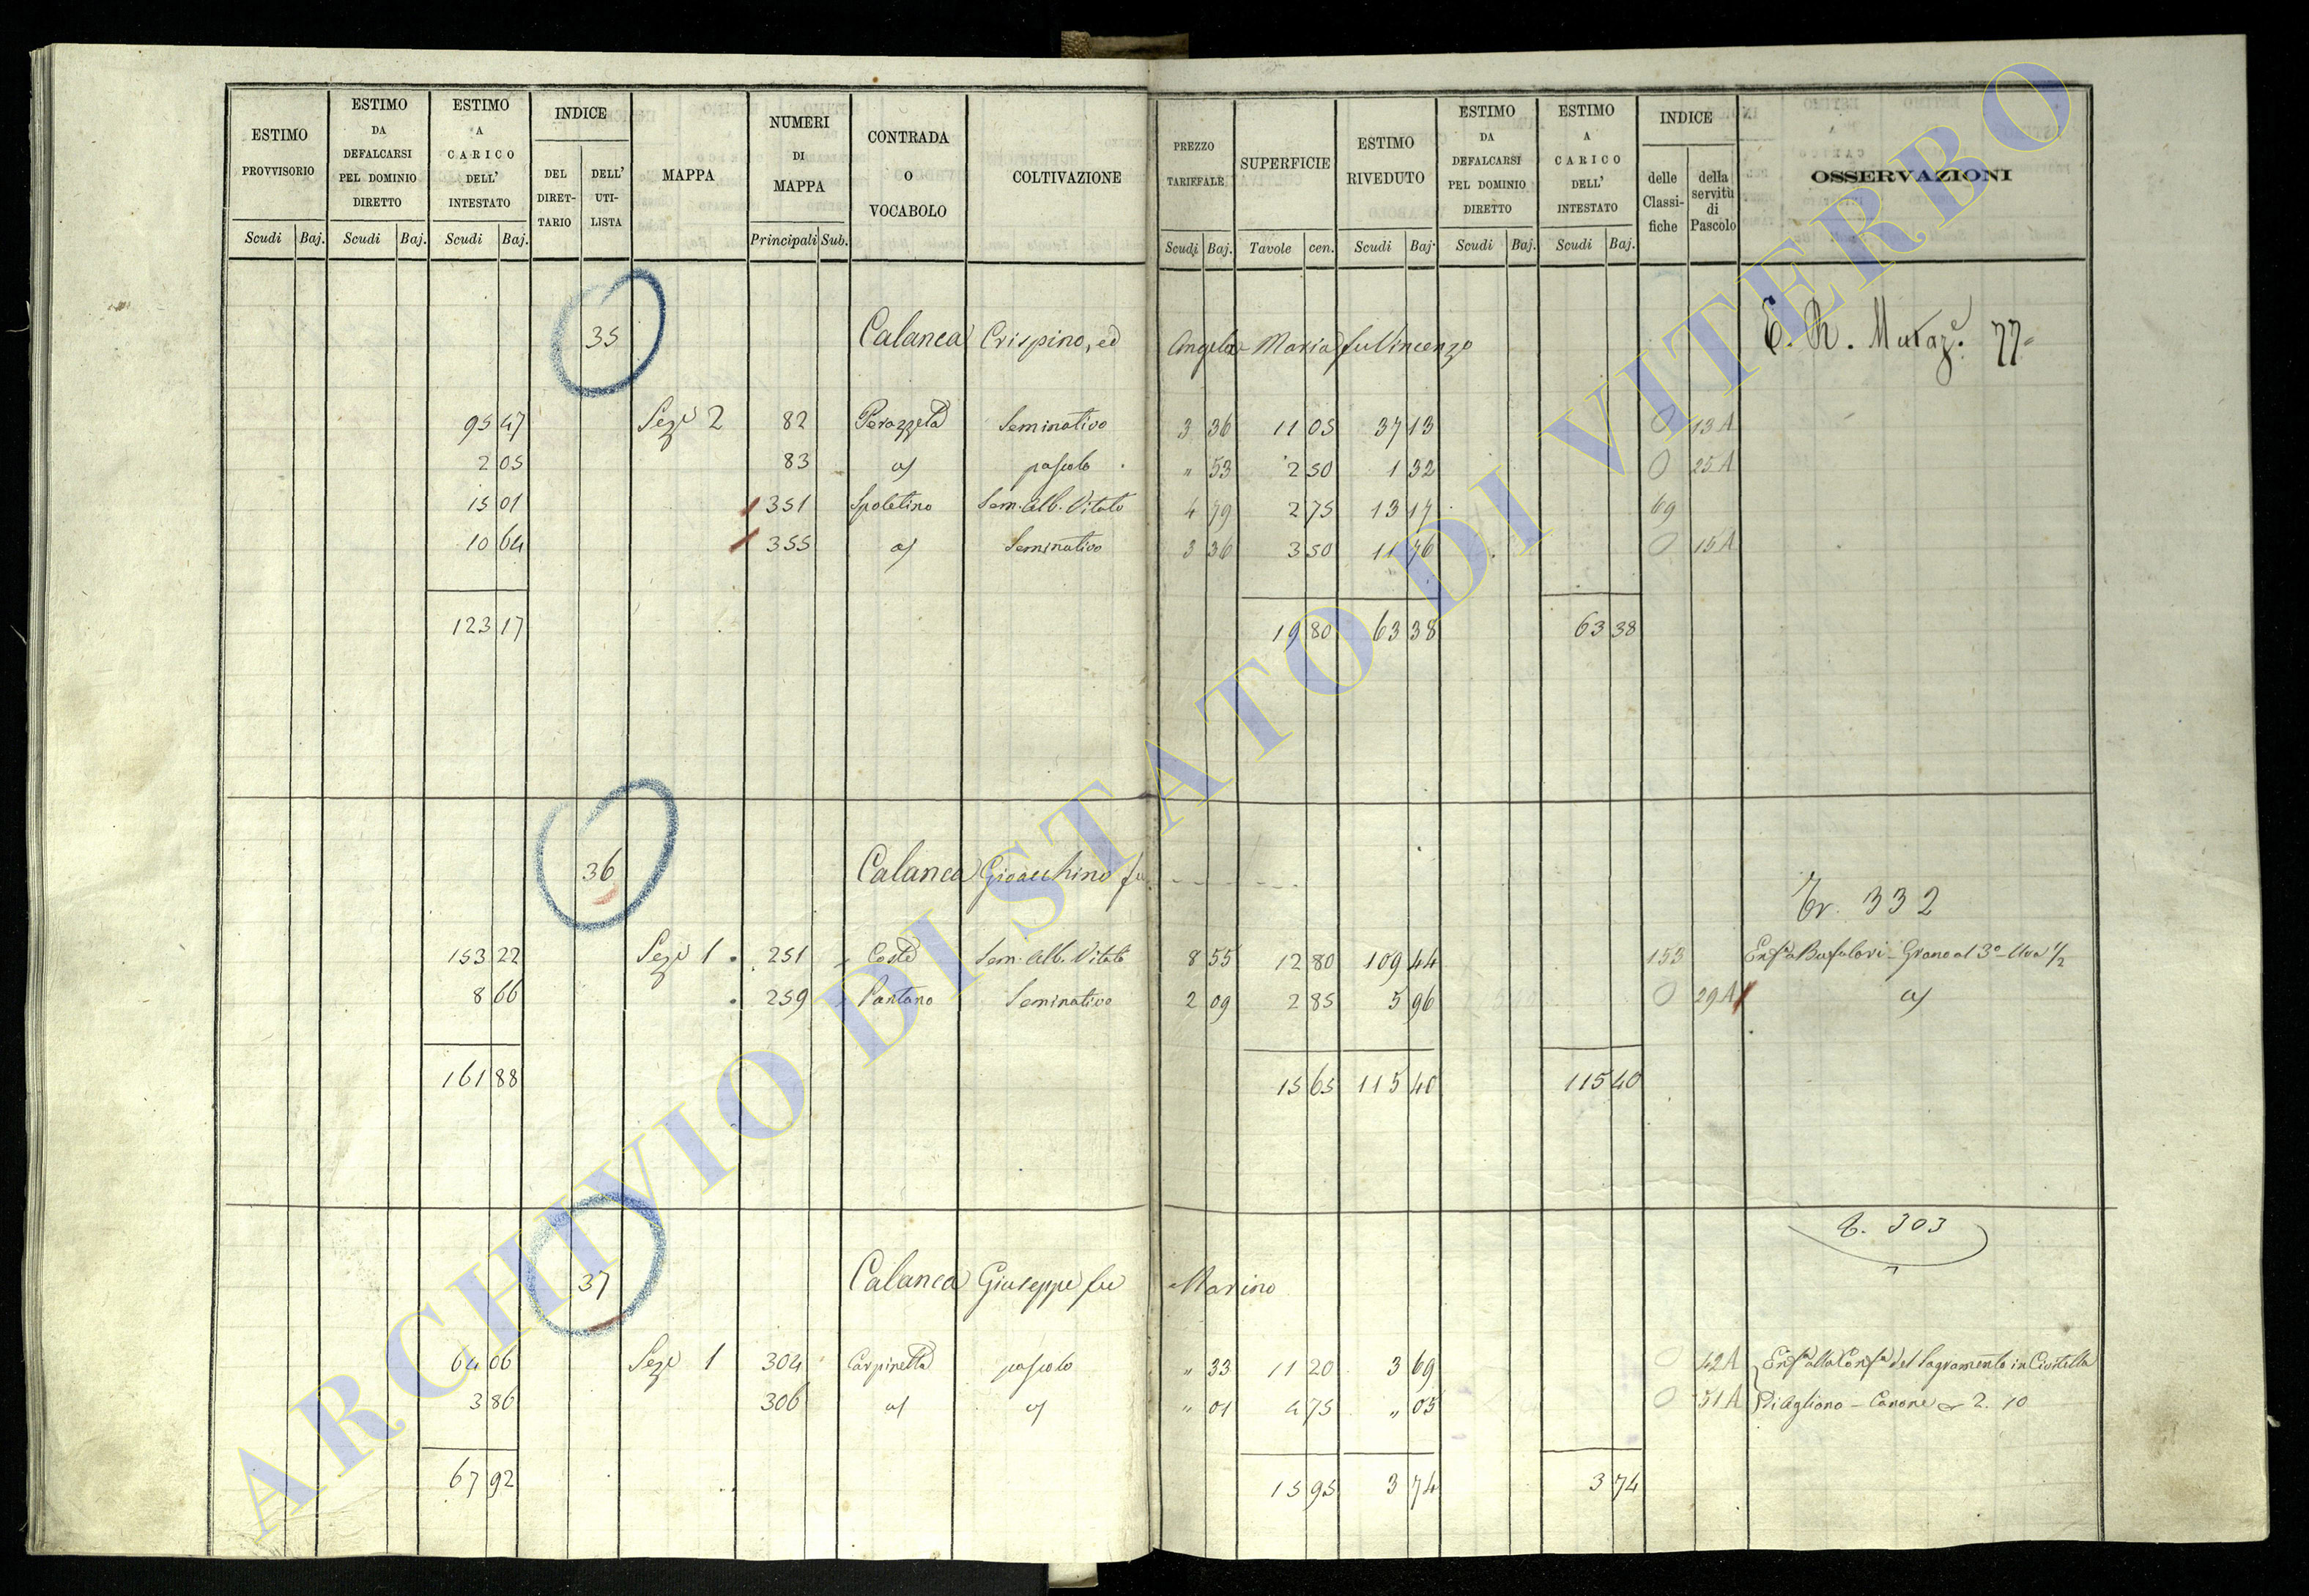 ESTIMO PROVVISORIO Scudi Baj.
ESTIMO DA DEFALCARSI PEL DOMINIO DIRETTO Scudi Baj.
ESTIMO A CARICO DELL' INTESTATO Scudi Baj.
INDICE DEL DIRETTARIO DELL' UTILISTA
MAPPA
NUMERI DI MAPPA Principali Sub.
CONTRADA O VOCABOLO
COLTIVAZIONE
PREZZO TARIFFALE Scudi Baj.
SUPERFICIE Tavole cen.
ESTIMO RIVEDUTO Scudi Baj.
ESTIMO DA DEFALCARSI PEL DOMINIO DIRETTO Scudi Baj.
ESTIMO A CARICO DELL' INTESTATO Scudi Baj.
INDICE delle Classifiche della servitù di Pascolo
OSSERVAZIONI
35 Calanca Crispino, ed Angela Maria fu Vincenzo E. R. 77
95 47 Sez. 2 82 Perazzeta Seminativo 3 36 11 05 37 13 0 13 A
2 05 83 pascolo " 53 2 50 1 32 0 25 A
15 01 351 Spoletino Sem. Alb. Vitato 4 79 2 75 13 17 69
10 64 355 Seminativo 3 36 3 50 11 76 0 15 A
123 17 19 80 63 38 63 38
36 Calanca Gioacchino fu - - - - - -
Tr. 332
153 22 Sez. 1 251 Coste Sem. Alb. Vitato 8 55 12 80 109 44 153 Enfa Bufalari - Grano al 3° - Uva 1/2
8 66 259 Pantano Seminativo 2 09 2 85 5 96 0 29 A
161 88 15 65 115 40 115 40
303
37 Calanca Giuseppe fu Marino
64 06 Sez. 1 304 Carpinetta pascolo " 33 11 20 3 69 0 42 A Enfa alla Confa del Sagramento in Civitella
3 86 306 " 01 4 75 " 05 0 51 A D'Agliano - Canone 2. 10
67 92 15 95 3 74 3 74
ARCHIVIO DI STATO DI VITERBO